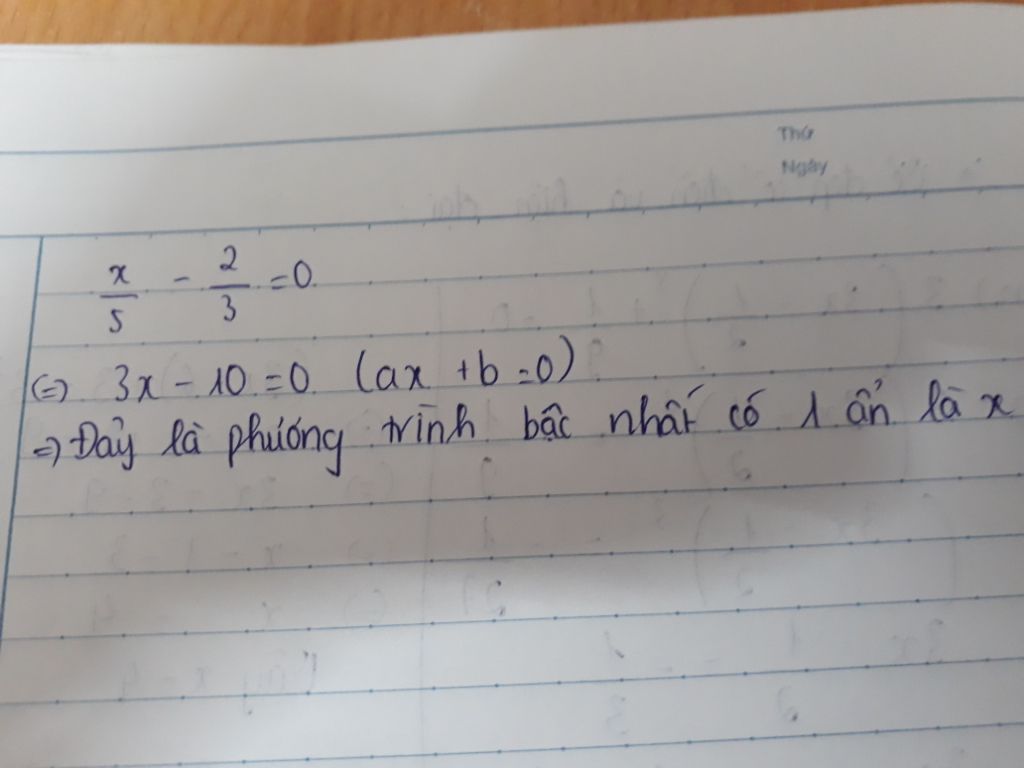 Thứ
Ngày
x/5 - 2/3 = 0
(=) 3x - 10 = 0 (ax + b = 0)
=) Đây là phương trình bậc nhất có 1 ẩn là x